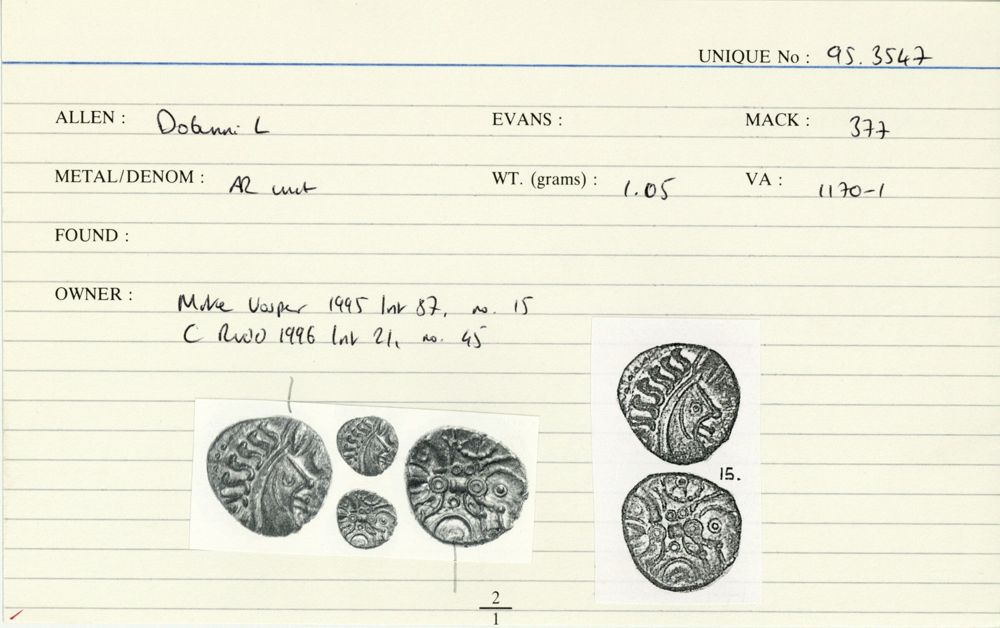 UNIQUE No : 95.3547
ALLEN : Dobunni L EVANS : MACK : 377
METAL/DENOM : AR unit WT. (grams) : 1.05 VA : 1170-1
FOUND :
OWNER : Mike Vosper 1995 list 87, no. 15
C Rudd 1996 list 21, no. 45
15.
2
1